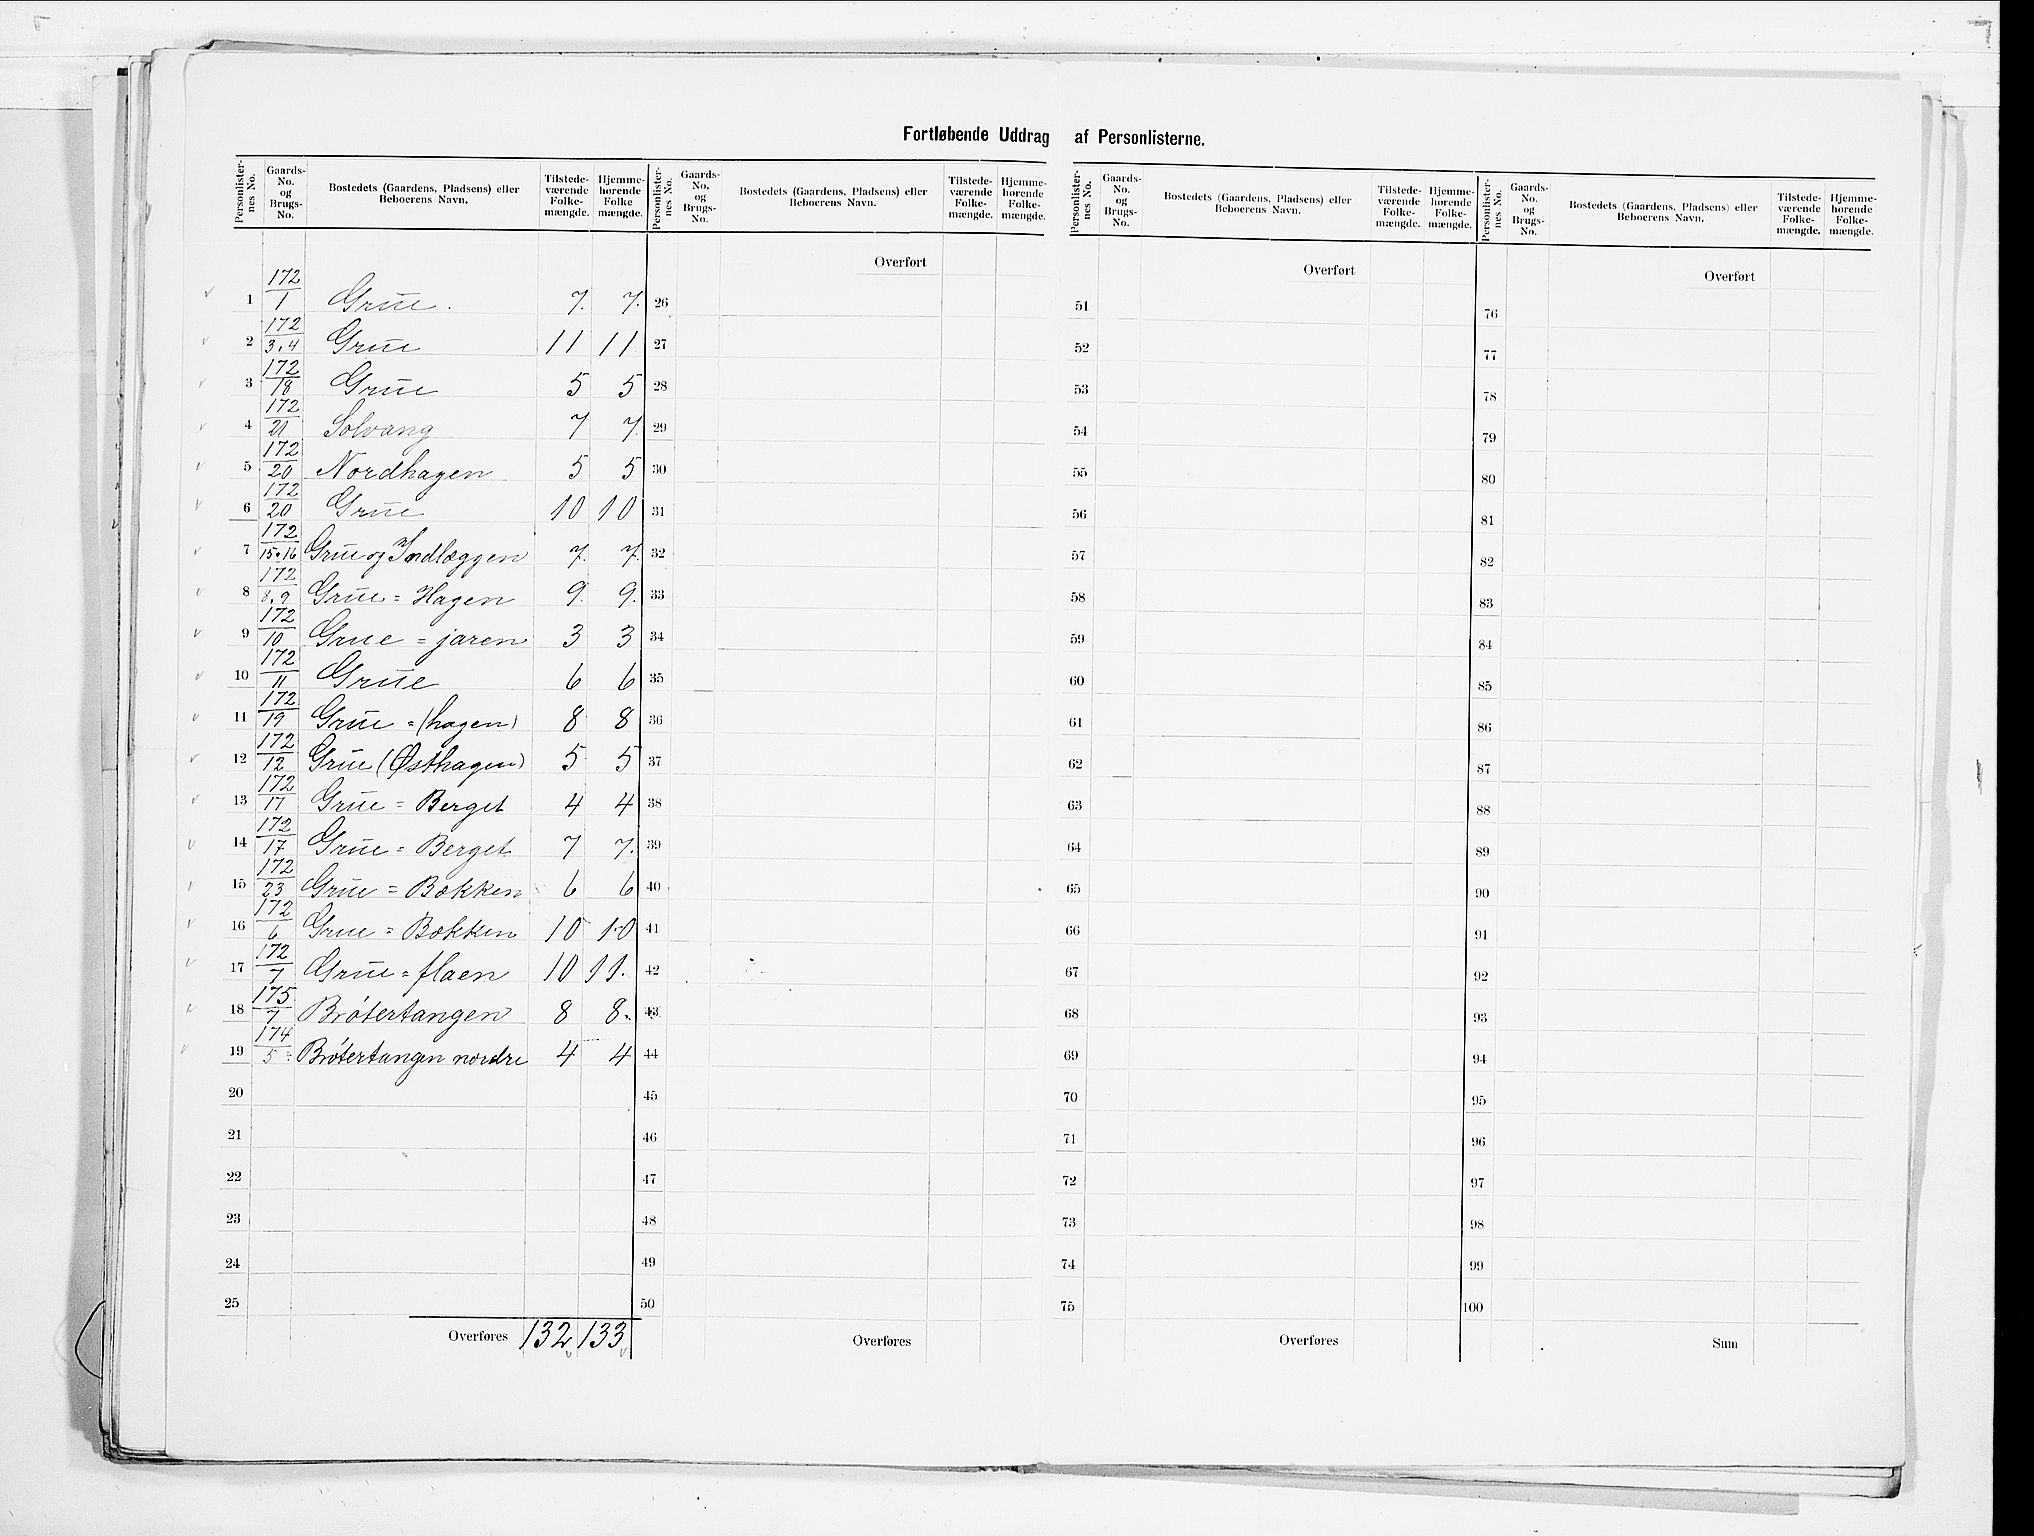 Fortløbende Uddrag af Personlisterne.
Personlister-nes No. Gaards-No. og Brugs-No. Bostedets (Gaardens, Pladsens) eller Beboerens Navn. Tilstede-værende Folke-mængde. Hjemme-hørende Folke mængde.
Personlister-nes No. Gaards-No. og Brugs-No. Bostedets (Gaardens, Pladsens) eller Beboerens Navn. Tilstede-værende Folke-mængde. Hjemme-hørende Folke-mængde.
Personlister-nes No. Gaards-No. og Brugs-No. Bostedets (Gaardens, Pladsens) eller Beboerens Navn. Tilstede-værende Folke-mængde. Hjemme-hørende Folke-mængde.
Personlister-nes No. Gaards-No. og Brugs-No. Bostedets (Gaardens, Pladsens) eller Beboerens Navn. Tilstede-værende Folke-mængde. Hjemme-hørende Folke-mængde.
Overført Overført Overført
1 172/1 Grue. 7. 7. 26 51 76
2 172/3.4 Grue 11 11 27 52 77
3 172/18 Grue 5 5 28 53 78
4 172/21 Solvang 7 7 29 54 79
5 172/20 Nordhagen 5 5 30 55 80
6 172/20 Grue 10 10 31 56 81
7 172/15.16 Grue og Indlæggen 7. 7. 32 57 82
8 172/8.9 Grue = Hagen 9. 9. 33 58 83
9 172/10 Grue = jaren 3 3 34 59 84
10 172/11 Grue 6 6 35 60 85
11 172/19 Grue = (hagen) 8 8 36 61 86
12 172/12 Grue (Østhagen) 5 5 37 62 87
13 172/17 Grue = Berget 4 4 38 63 88
14 172/17 Grue = Berget 7 7. 39 64 89
15 172/23 Grue = Bækken 6 6 40 65 90
16 172/6 Grue = Bækken 10 10 41 66 91
17 172/7 Grue = flaen 10 11. 42 67 92
18 175/7 Brøtertangen 8 8. 43 68 93
19 174/5 Brøtertangen nordre 4 4 44 69 94
20 45 70 95
21 46 71 96
22 47 72 97
23 48 73 98
24 49 74 99
25 50 75 100
Overføres 132 133 Overføres Overføres Sum